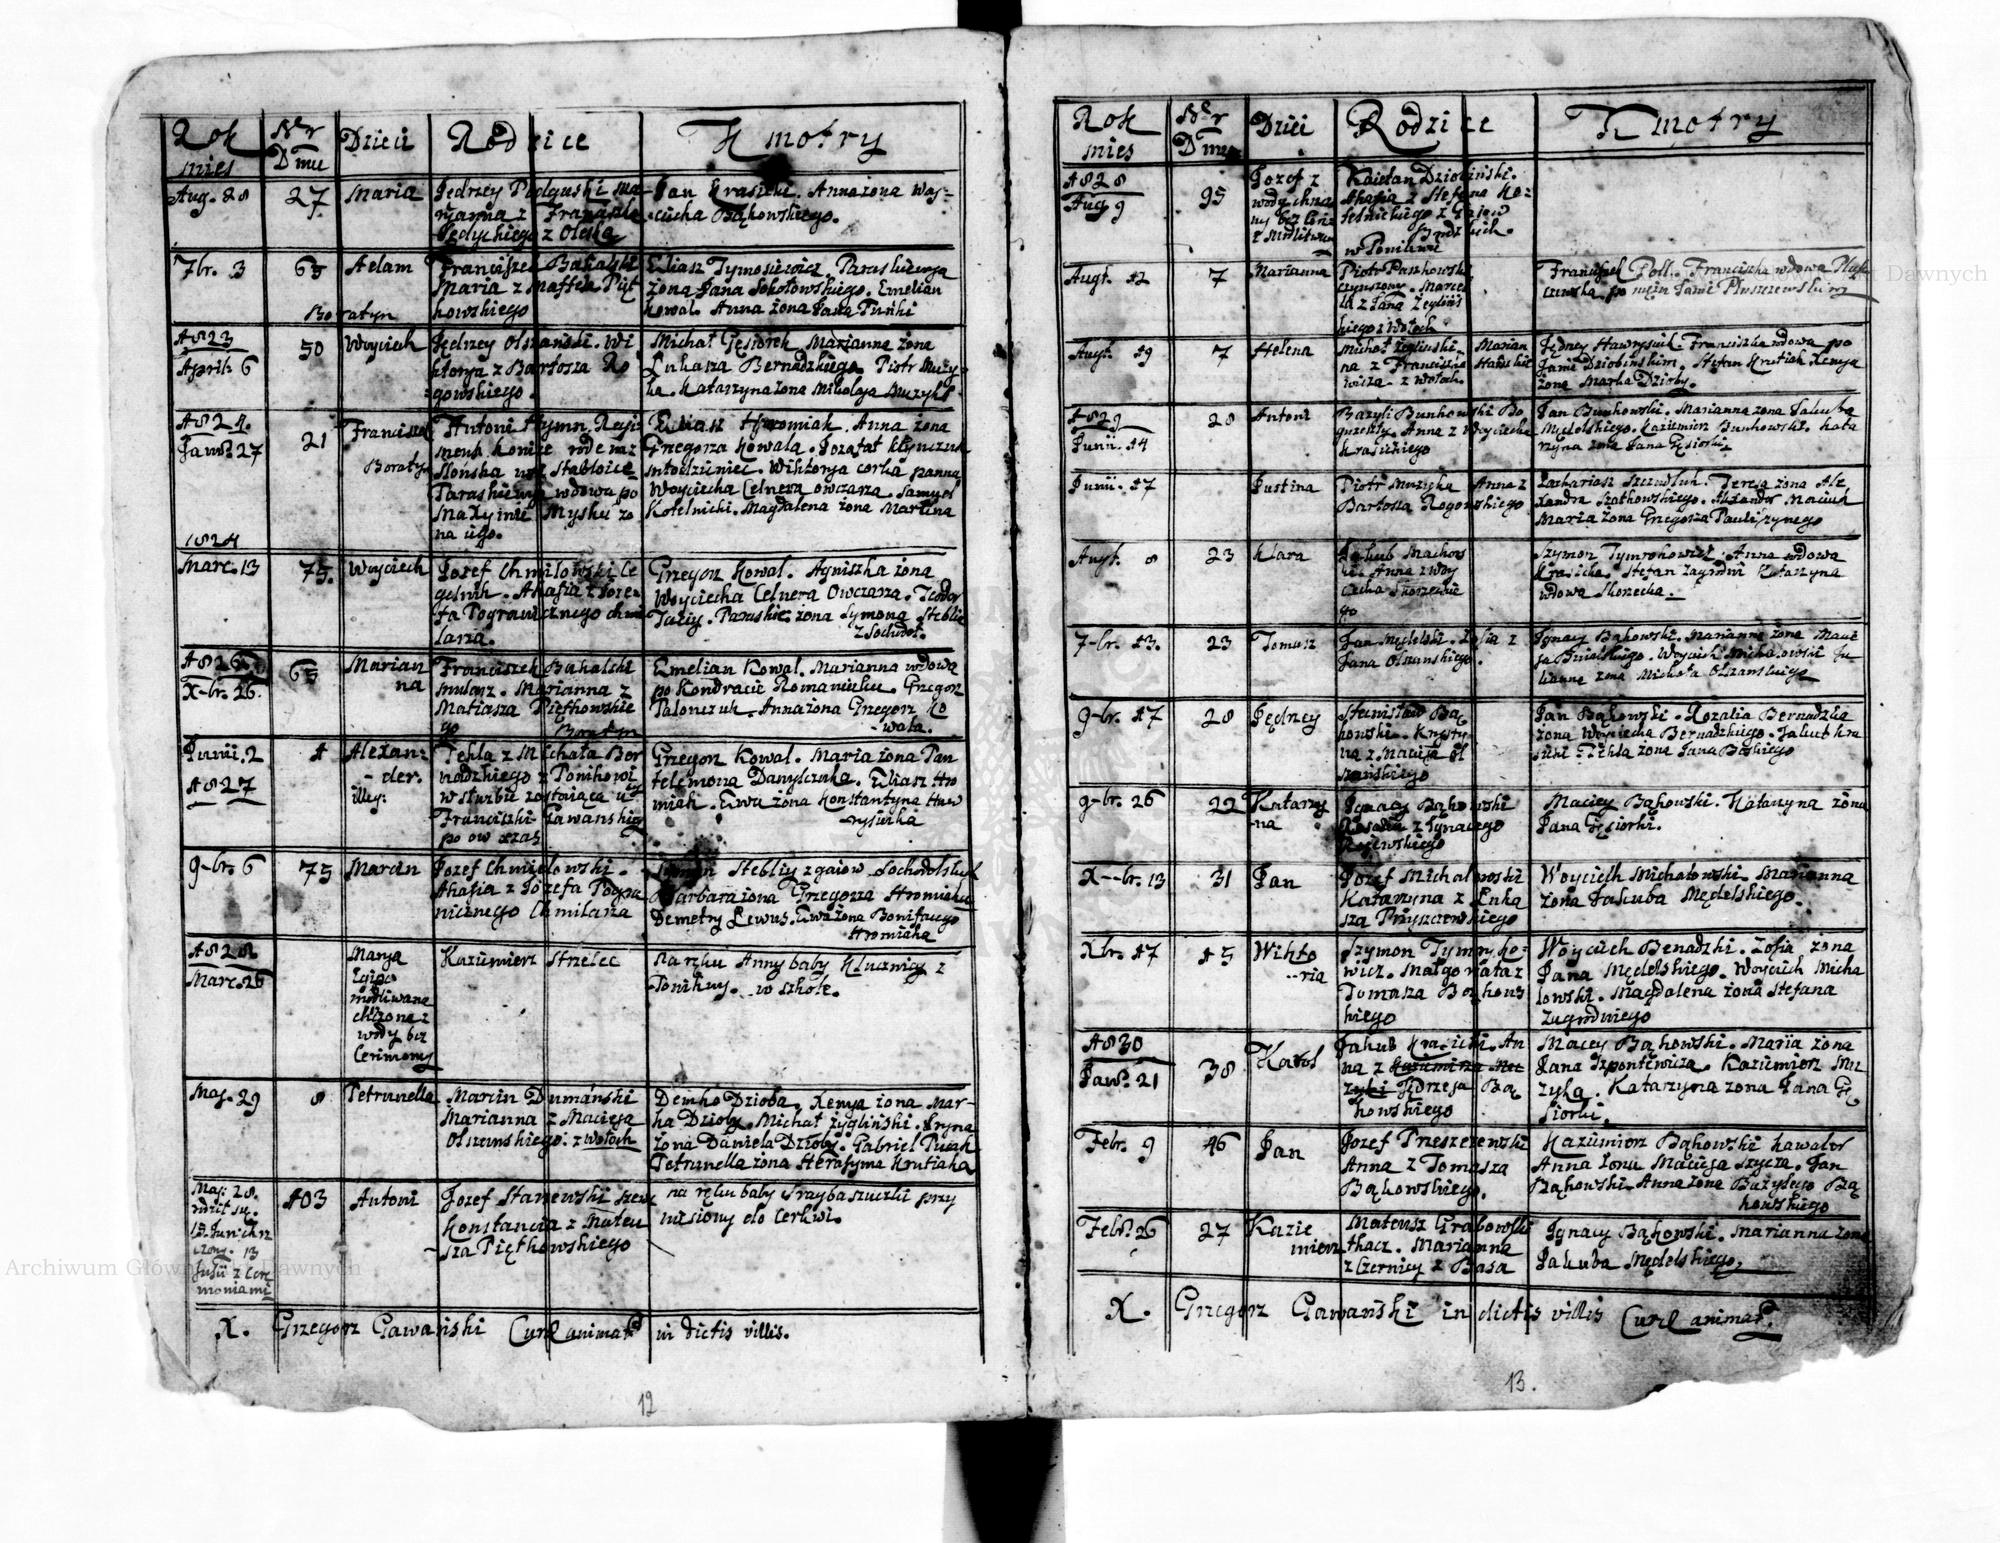 Rok Nr Dzieci Rodzice Kmotry
mies Dmu
Aug. 28 27 Maria Jędrzey Podguski Ma-
ryanna z Franciszka
Pędyckiego z Oleska
Jan Krasicki. Anna żona Woy-
ciecha Bąkowskiego.
7br. 3 65 Adam Franciszek Bakalski
Maria z Maffeia Pięt
kowskiego
Boratyn
Eliasz Tymosiewicz. Paraskiewia
żona Jana Sokołowskiego. Emelian
Kowal. Anna żona Jana Funki
A823
Aprili 6 50 Woyciech Jędrzey Olszański. Wi
ktorya z Bartosza Ro
gowskiego.
Michał Gęsiorek. Marianna żona
Łukasza Bernadzkiego. Piotr Muzy-
ka. Katarzyna żona Mikołaja Muzyki
A824
Jan. 27 21 Franciszek
Boratyn
Antoni Hymn. Reji
ment konice rodem z
Słońska wsi
Paraskiewja wdowa po
Maxymie Mysku zo
na iego.
Eliasz Hromiak. Anna żona
Grzegorza Kowala. Jozafat Kłymczuk
młodzieniec. Wiktorja corka panna
Woyciecha Celnera owczarza. Samuel
Kotelnicki. Magdalena żona Marcina
1824
Marc. 13 75. Woyciech Jozef Chmilowski Ce
gelnik. Ahafia z Joze-
fa Pogranicznego chmi
larza.
Grzegorz Kowal. Agniszka żona
Woyciecha Celnera Owczarza. Teodor
Tuziy. Paraskie. żona Symona Steblie
z Sochwoł.
A826
X-br. 26. 65 Marian
na
Franciszek Bakalski
mularz. Marianna z
Matiasza Piętkowskie
go Boratyn
Emelian Kowal. Marianna wdowa
po Kondracie Romaniuku. Grzegorz
Palonczuk. Anna żona Grzegorz Ko
-wala.
Junii. 2 1 Alexan-
A827 -der.
illeg:
Tekla z Michała Ber
nadzkiego z Ponikowi
w służbie zostaiąca u
Franciszki Gawanskiey
po ow czas
Grzegorz Kowal. Maria żona Pan
telemona Danylczuka. Eliasz Hro
miak. Ewa żona Konstantyna Haw
-ryśiuka
9-br. 6 75 Marcin Jozef Chmielowski.
Ahafia z Jozefa Pogra
nicznego Chmilarza
Symon Stebliy z gaiow Sochwolskich
Barbara żona Grzegorza Hromiaka
Demetry Lewus. Ewa żona Bonifacego
Hromiaka
A828
Marc. 26 Marya
tylko
modliwana
chrzona z
wody bez
Cerimony
Kazimierz Strzelec na ręku Anny baby Kluczniey z
Ponikwy. w szkole.
Maj. 29 8 Petrunella Marcin Dumański
Marianna z Macieja
Olszanskiego. z wołoch
Demko Dzioba. Xenya żona Mar-
ka Dzioby. Michał Żygliński. Iryna
żona Daniela Dzioby. Gabriel Pucak
Petrunella żona Herasyma Krutiaka
Maj. 28.
rodził się.
13 Junii chrz
czony. 13
Julii z Cere
moniami
103 Antoni Jozef Staniewski szew
Konstancia z Mateu
-sza Piętkowskiego
na ręku baby Hrayba szuczki przy
niesiony do Cerkwi.
X. Grzegorz Gawański Curl animar in dictis villis.
12
Rok Nr Dzieci Rodzice Kmotry
mies Dmu
A828
Aug 9 95 Jozef z
wody chrzo
ny bez Cere
z modlitwa
Kaietan Dziobiński.
Ahafia z Stefana Ko-
telnickiego z Gaiow
w Ponikwie
Augt. 12 7 Marianna Piotr Paszkowski
czynszowy. Marce
la z Jana Żegliń
skiego z Wołoch
Franciszek Poll. Franciszka wdowa Plusz
czewska po mężu Janie Pluszczewskim
Augt. 19 7 Helena Michał Żegliński. Marian
na z Franciszka Hałuskie
wicza z wołoch.
Jędrzey Hawrysiuk Franciszka wdowa po
Janie Dziobinskim. Stefan Krutiak Xenya
żona Marka Dzioby.
A829
Junii. 14 28 Antoni Bazyli Bunkowski Bo
guszeky. Anna z Woyciecha
Krasickiego
Jan Bunkowski. Marianna żona Jakuba
Mędelskiego. Kazimierz Bunkowski. Kata
rzyna żona Jana Gęsiorki
Junii. 17 Justina Piotr Muzyka Anna z
Bartosza Rogowskiego
Zachariasz Szczudluk. Teresa żona Ale
xandra Szatkowskiego. Alexander Maciuk
Maria żona Grzegorza Pauliszynego
Augt. 8 23 Klara Jakub Machow
ski Anna z Woy
ciecha Skorzewie
go
Szymon Tymrykowicz. Anna wdowa
Krasicka. Stefan Zagrodni Katarzyna
wdowa Skorzecka.
7-br. 13. 23 Tomasz Jan Mędelski. Zofia z
Jana Olszanskiego.
Ignacy Bąkowski. Marianna żona Macie
ja Bnialskiego. Woyciech Michałowski Ju
lianna żona Michała Olszanskiego
9-br. 17 28 Jędrzey Stanisław Bą
kowski. Krysty
na z Macieja Ol
szańskiego
Jan Bąkowski. Rozalia Bernadzka
żona Woyciecha Bernadzkiego. Jakub Kra
sicki. Tekla żona Jana Boskiego
9-br. 26 22 Katarzy
-na
Ignacy Bąkowski
Rosalia z Ignacego
Rojewskiego
Maciey Bąkowski. Katarzyna żona
Jana Gęsiorki.
X-br. 13 31 Jan Jozef Michałowski
Katarzyna z Łuka
sza Pruszczewskiego
Woyciech Michałowski. Marianna
żona Jakuba Mędelskiego.
Xbr. 17 15 Wikto
-ria
Szymon Tymryko-
wicz. Małgorzata z
Tomasza Bąkows
kiego
Woyciech Benadzki. Zofia żona
Jana Mędelskiego. Woyciech Micha
lowski. Magdalena żona Stefana
Zagrodniego
A830
Jan. 21 38 Karol Jakub Krasicki. An
na z Kazimierza Mu
zyki Jędrzeja Bą
kowskiego
Maciey Bąkowski. Maria żona
Jana Szponiewicza. Kazimierz Mu
zyka. Katarzyna żona Jana Gę
siorki.
Febr. 9 46 Jan Jozef Preszczewski
Anna z Tomasza
Bąkowskiego.
Kazimierz Bąkowski kawaler
Anna żona Macieja Szycza. Jan
Bąkowski Anna żona Bazylego Bą
kowskiego
Febr. 26 27 Kazie
mierz
Mateusz Grabowski
tkacz. Marianna
z Czernicy z Basa
Ignacy Bąkowski. Marianna żona
Jakuba Mędelskiego.
X. Grzegorz Gawański in dictis villis Curl animar.
13.
Archiwum Główne Akt Dawnych
Archiwum Główne Akt Dawnych